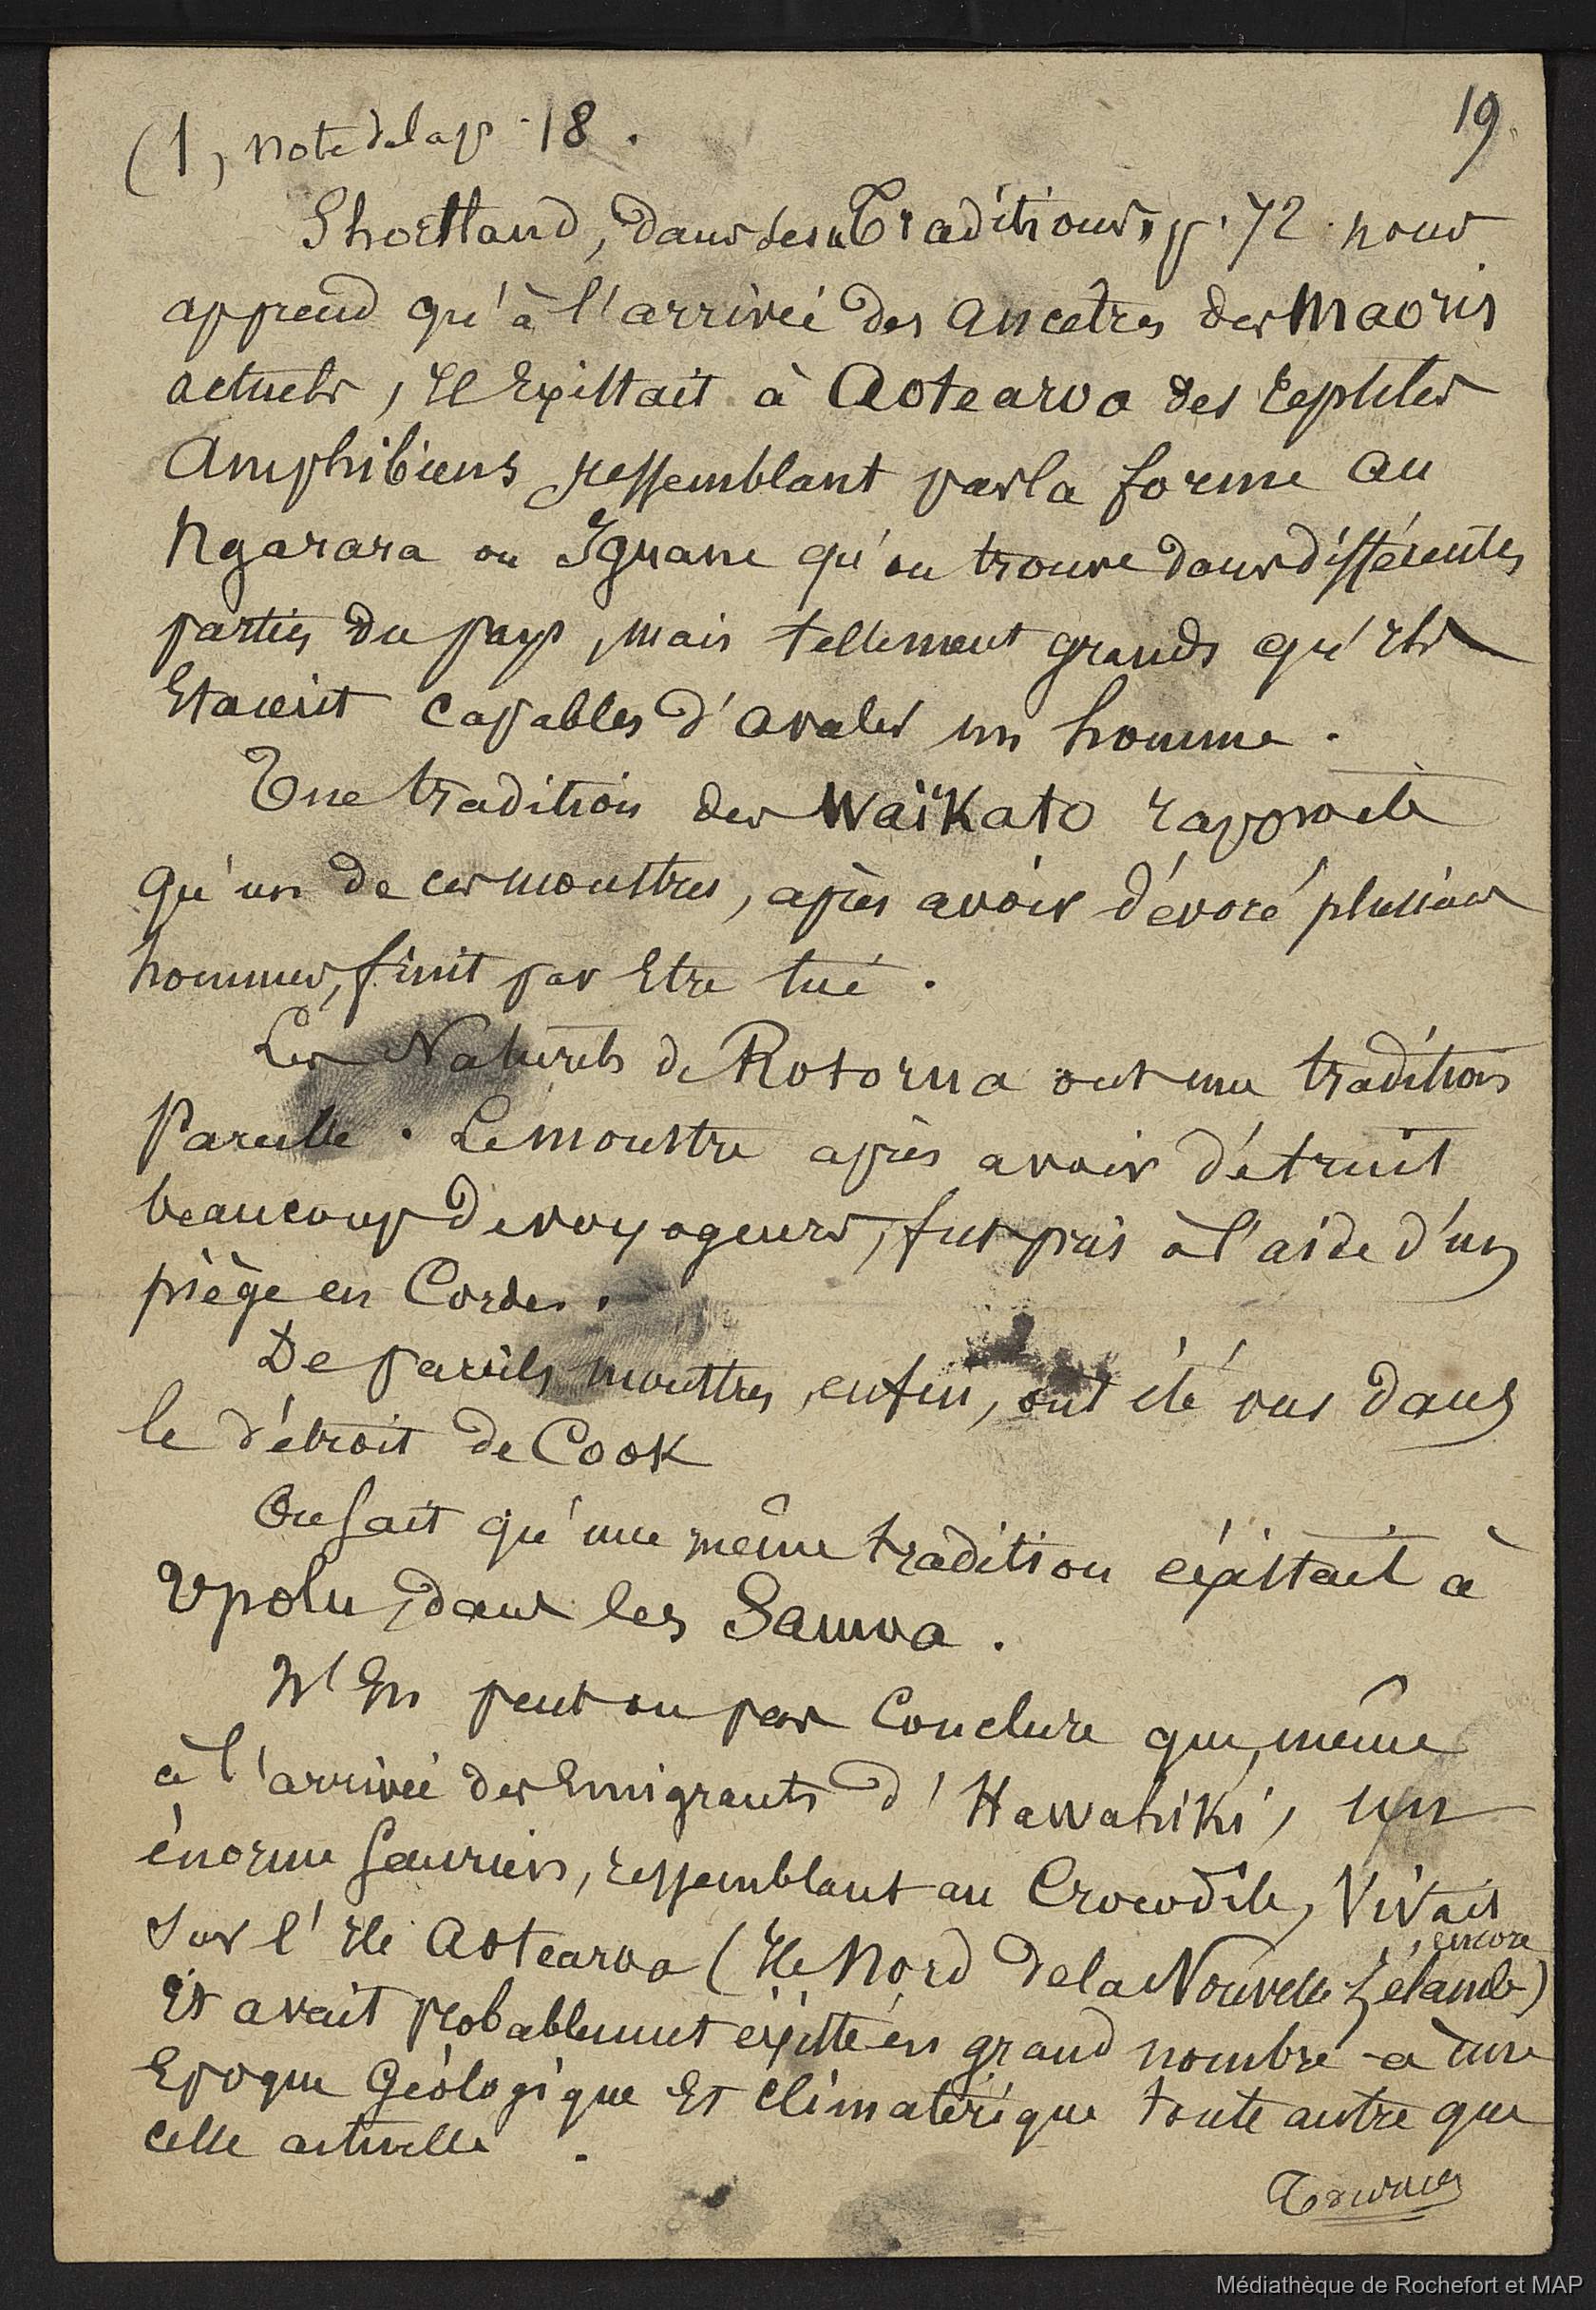 19
(1, note de la p. 18.
Shortland, dans ses "Traditions, p. 72. nous
apprend qu'à l'arrivée des ancetres des Maoris
actuels, il Existait à Aotearoa des reptiles
Amphibiens ressemblant par la forme au
Ngarara ou Iguane qu'on trouve dans différentes
parties du pays, mais tellement grands qu'ils
Etaient capables d'avaler un homme.
Une tradition des Waïkato rapporte
qu'un de ces monstres, après avoir dévoré plusieurs
hommes, finit par Etre tué.
Les Naturels de Rotorua ont une tradition
Pareille. Le monstre après avoir détruit
beaucoup de voyageurs, fut pris à l'aide d'un
piège en Cordes.
De pareils monstres, enfin, ont été vus dans
le détroit de Cook
On sait qu'une même tradition éxistait à
Upolu, dans les Samoa.
N'En peut on pas Conclure que, même
à l'arrivée des Emigrants d'Hawahiki, un
énorme Saurien, ressemblant au Crocodile, Vivait
encore
sur l'Ile Aotearoa (Ile Nord de la Nouvelle Zélande)
Et avait probablement éxisté en grand nombre à une
Epoque Géologique Et Climatérique toute autre que
celle actuelle.
Médiathèque de Rochefort et MAP